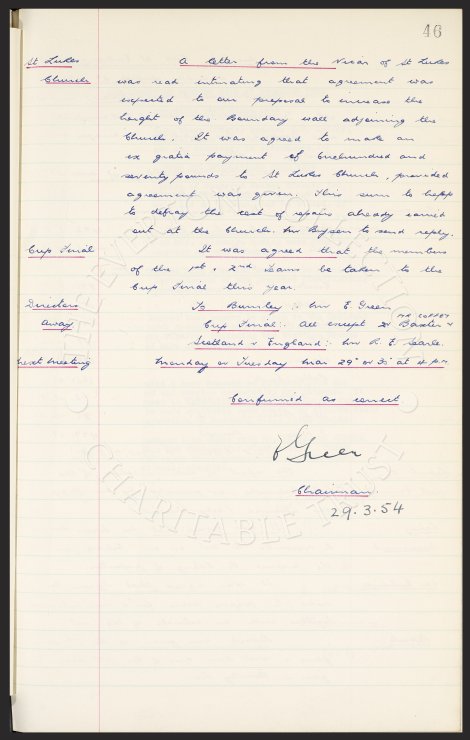 46
St Lukes Church
A letter from the Vicar of St Lukes
was read intimating that agreement was
expected to our proposal to increase the
height of the Boundary wall adjoining the
Church. It was agreed to make an
ex gratia payment of One hundred and
seventy pounds to St Lukes Church, provided
agreement was given. This sum to help
to defray the cost of repairs already carried
out at the Church. Mr to send reply.
Cup Final
It was agreed that the members
of the 1st & 2nd Teams be taken to the
Cup Final this year.
Directors Away
To Burnley :- Mr E Green
MR COFFEY
Cup Final :- All except Dr Baxter &
Scotland v England :- Mr R. E. Searle.
Next Meeting
Monday or Tuesday Mar 29 or at 4 p.m.
Confirmed as correct
E Green
Chairman
29.3.54
THE EVERTON COLLECTION
CHARITABLE TRUST